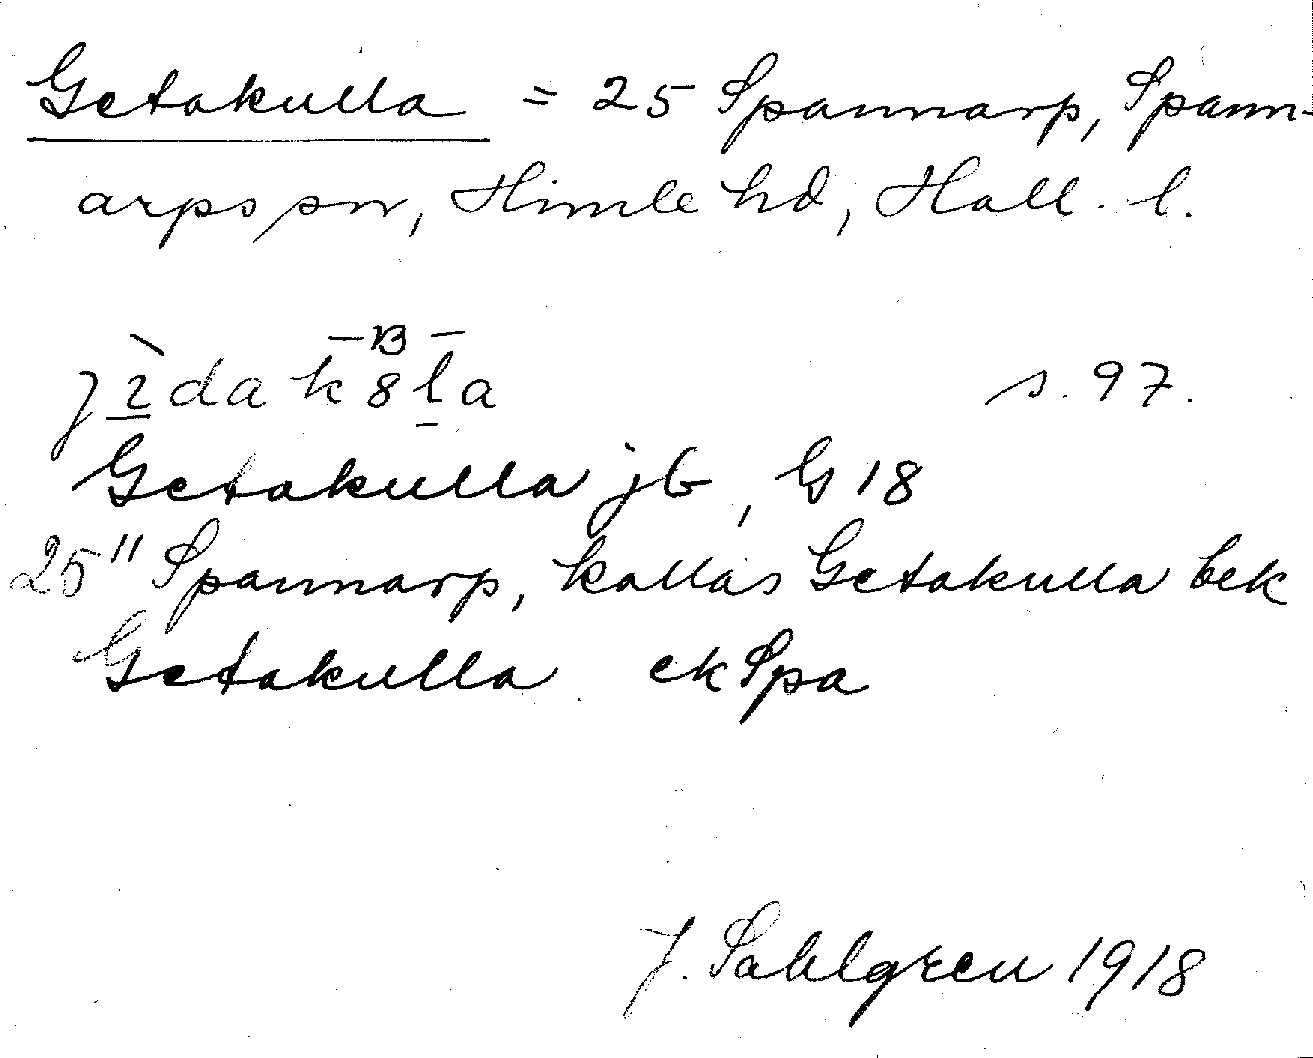 Getakulla = 25 Spannarp, Spann-
arps sn, Himle hd, Hall. l.
s. 97.
Getakulla jb, G 18
25" Spannarp, kallas Getakulla bek
Getakulla ek Spa
J. Sahlgren 1918